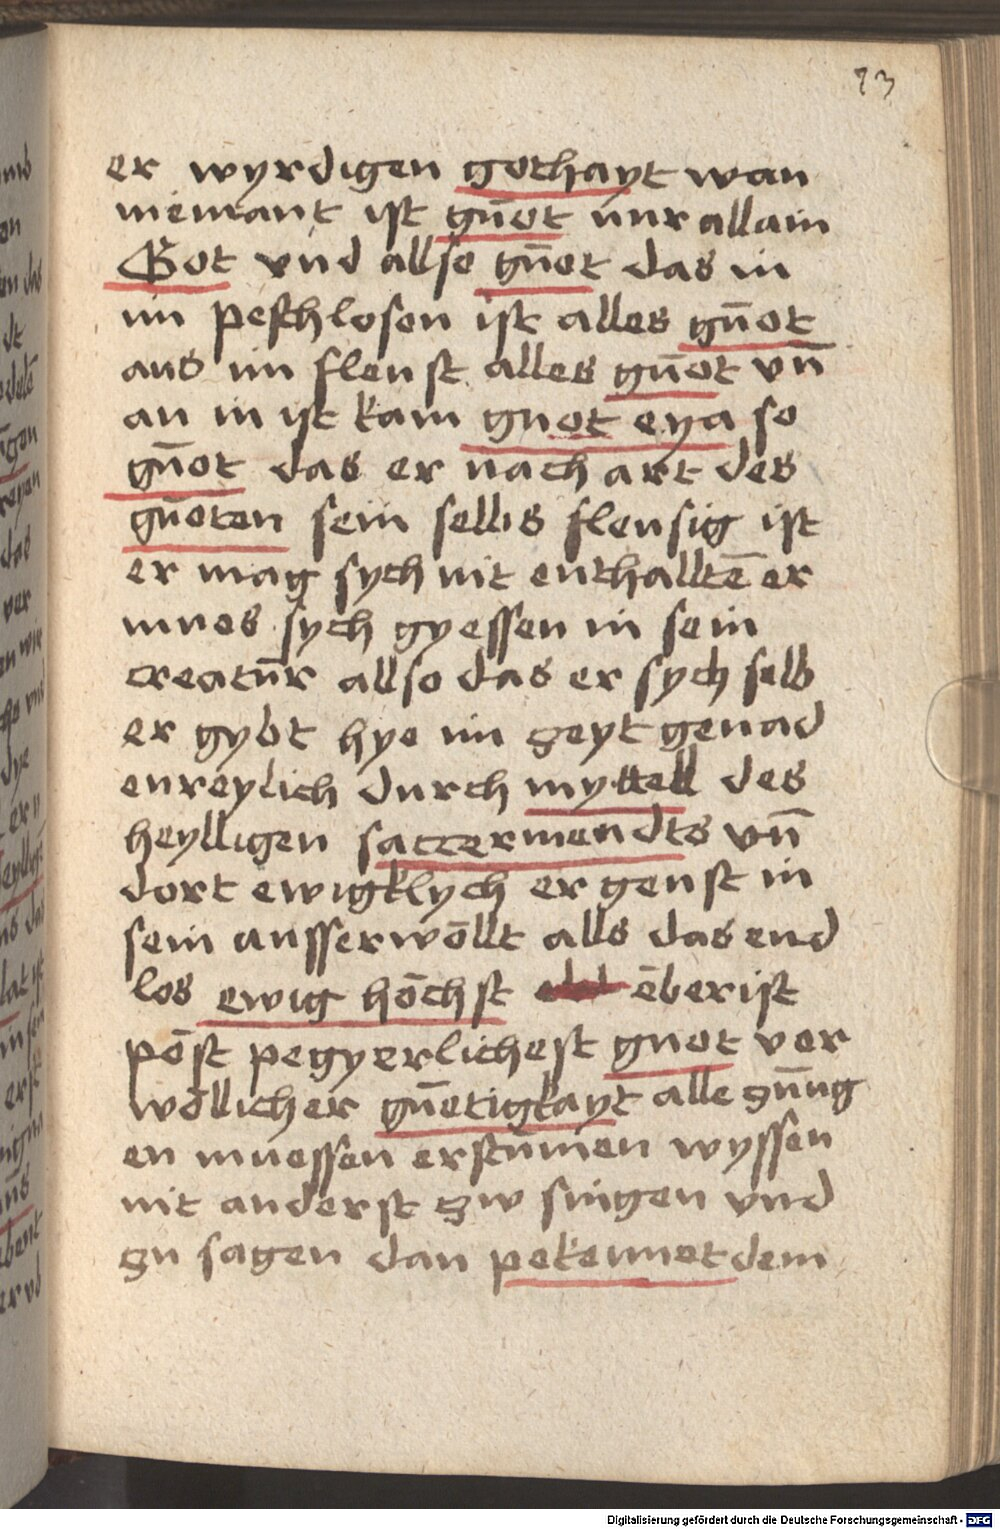 73
er wyrdigen gothayt wan
niemant ist gūot nur allain
Got vnd allso gūot das in
im peschlosen ist alles gūot
aus im fleust alles gūot vn̄
an in ist kain guot eya so
gūot das er nach art des
gūoten sein selbs fleusig ist
er mag sych nit enthalltē er
mues sych gyessen in sein
creatūr allso das er sych selb
er gybt hye im zeyt genad
enreylich durch myttell des
heylligen saccermendts vn̄
dort ewigklych er geust in
sein ausserwōllt alls das end
los ewig hōchst ōberist
pōst pegyerlichest guot vor
wōllicher gūetigkayt alle zūng
en muessen erstūmen wyssen
nit anderst zw singen vnd
zu sagen dan pekennet dem
Digitalisierung gefördert durch die Deutsche Forschungsgemeinschaft - DFG